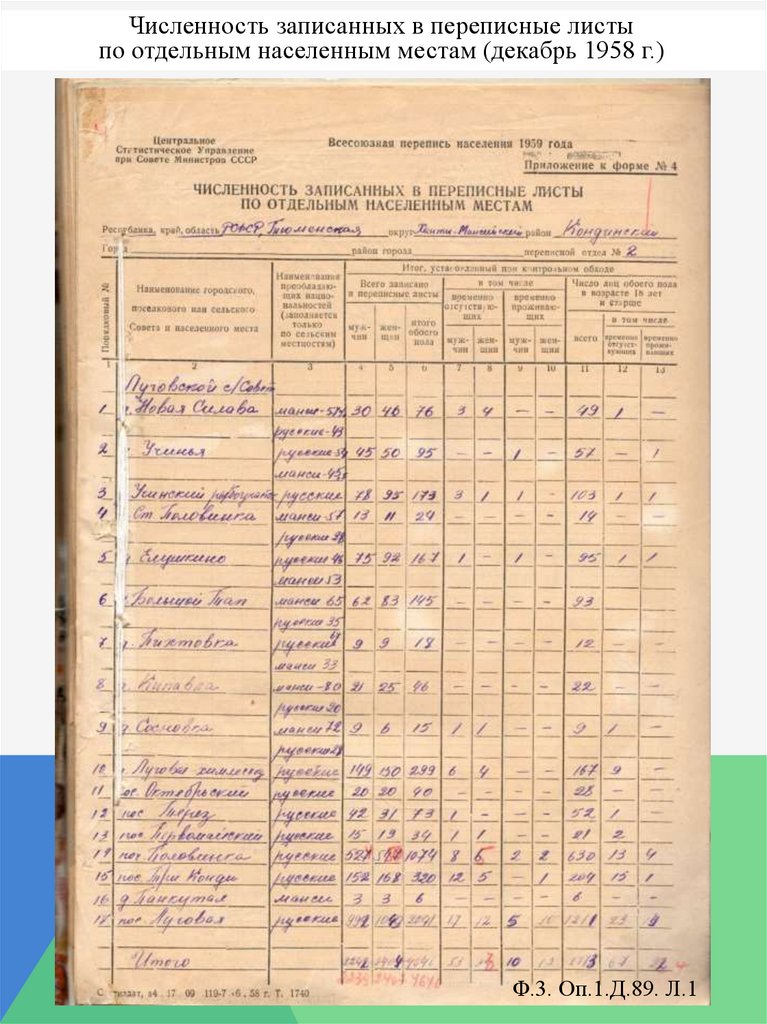 Численность записанных в переписные листы
по отдельным населенным местам (декабрь 1958 г.)
Центральное
Статистическое Управление
при Совете Министров СССР
Всесоюзная перепись населения 1959 года
Приложение к форме № 4
ЧИСЛЕННОСТЬ ЗАПИСАННЫХ В ПЕРЕПИСНЫЕ ЛИСТЫ
ПО ОТДЕЛЬНЫМ НАСЕЛЕННЫМ МЕСТАМ
Республика, край, область РСФСР, Тюменская округ Ханты-Мансийский район Кондинский
Город район города переписной отдел № 2
Порядковый №
Наименование городского,
поселкового или сельского
Совета и населенного места
Наименование
преобладаю-
щих нацио-
нальностей
(заполняется
только
по сельским
местностям)
Итог, установленный при контрольном обходе
Всего записано
в переписные листы
муж-
чин
жен-
щин
итого
обоего
пола
в том числе
временно
отсутствую-
щих
муж-
чин
жен-
щин
временно
проживаю-
щих
муж-
чин
жен-
щин
Число лиц обоего пола
в возрасте 18 лет
и старше
всего
в том числе
временно
отсутст-
вующих
временно
прожи-
вающих
1 2 3 4 5 6 7 8 9 10 11 12 13
Луговской с/Совет
1 Новая Силава манси-57 30 46 76 3 4 - - 49 1 -
русские-43
2 Учинья русские 54 45 50 95 - - 1 - 57 - 1
манси-45
3 Учинский русские 78 95 173 3 1 1 - 103 1 1
4 Ст. Половинка манси-57 13 11 24 - - - - 14 - -
русские 38
5 Елушкино русские 46 75 92 167 1 - 1 - 95 1 1
манси 53
6 Большой Тап манси 65 62 83 145 - - - - 93
русские 35
7 Пихтовка русские 67 9 9 18 - - - - 12 - -
манси 33
8 манси-80 21 25 46 - - - - 22 - -
русские 20
9 д Сосновка манси 72 9 6 15 1 1 - - 9 1 -
русские 28
10 Луговая химлесхоз русские 149 150 299 6 4 - - 167 9 -
11 пос. Октябрьский русские 20 20 40 - - - - 28 - -
12 пос Терез русские 42 31 73 1 - - - 52 1 -
13 пос. Первомайский русские 15 19 34 1 1 - - 21 2
14 пос. Половинка русские 527 547 1074 8 6 2 2 630 13 4
15 пос. Три Конди русские 152 168 320 12 5 - 1 204 15 1
16 д Панкутал манси 3 3 6 - - - - 6 - -
17 пос. Луговая русские 17 12 5 10 23 19
Итого 10 67
Ф.3. Оп.1.Д.89. Л.1